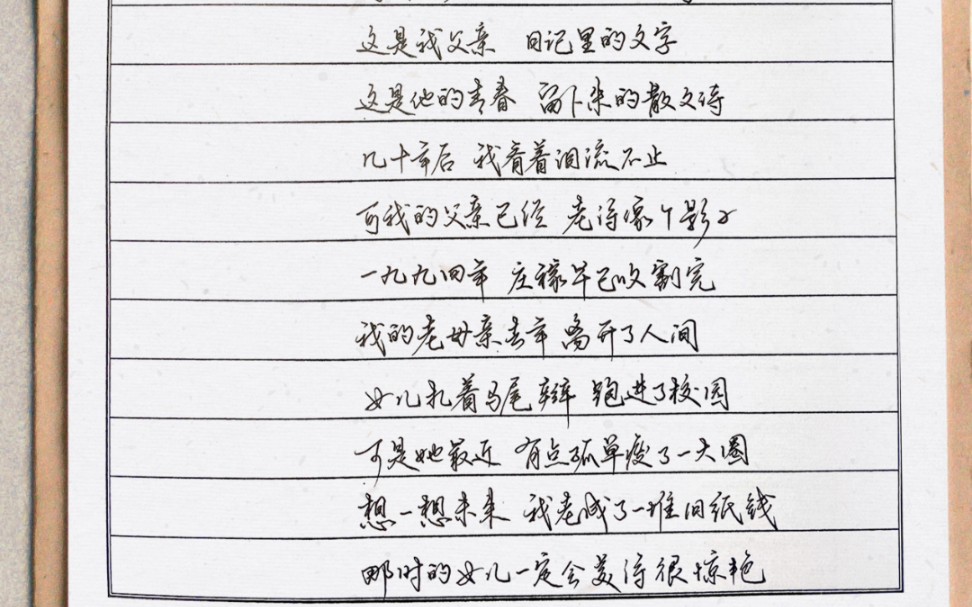 这是我父亲 日记里的文字
这是他的青春 留下来的散文诗
几十年后 我看着泪流不止
可我的父亲已经 老得像个影子
一九九四年 庄稼早已收割完
我的老母亲去年 离开了人间
女儿扎着马尾辫 跑进了校园
可是她最近 有点孤单瘦了一大圈
想一想未来 我老成了一堆旧纸钱
那时的女儿一定会美得很惊艳